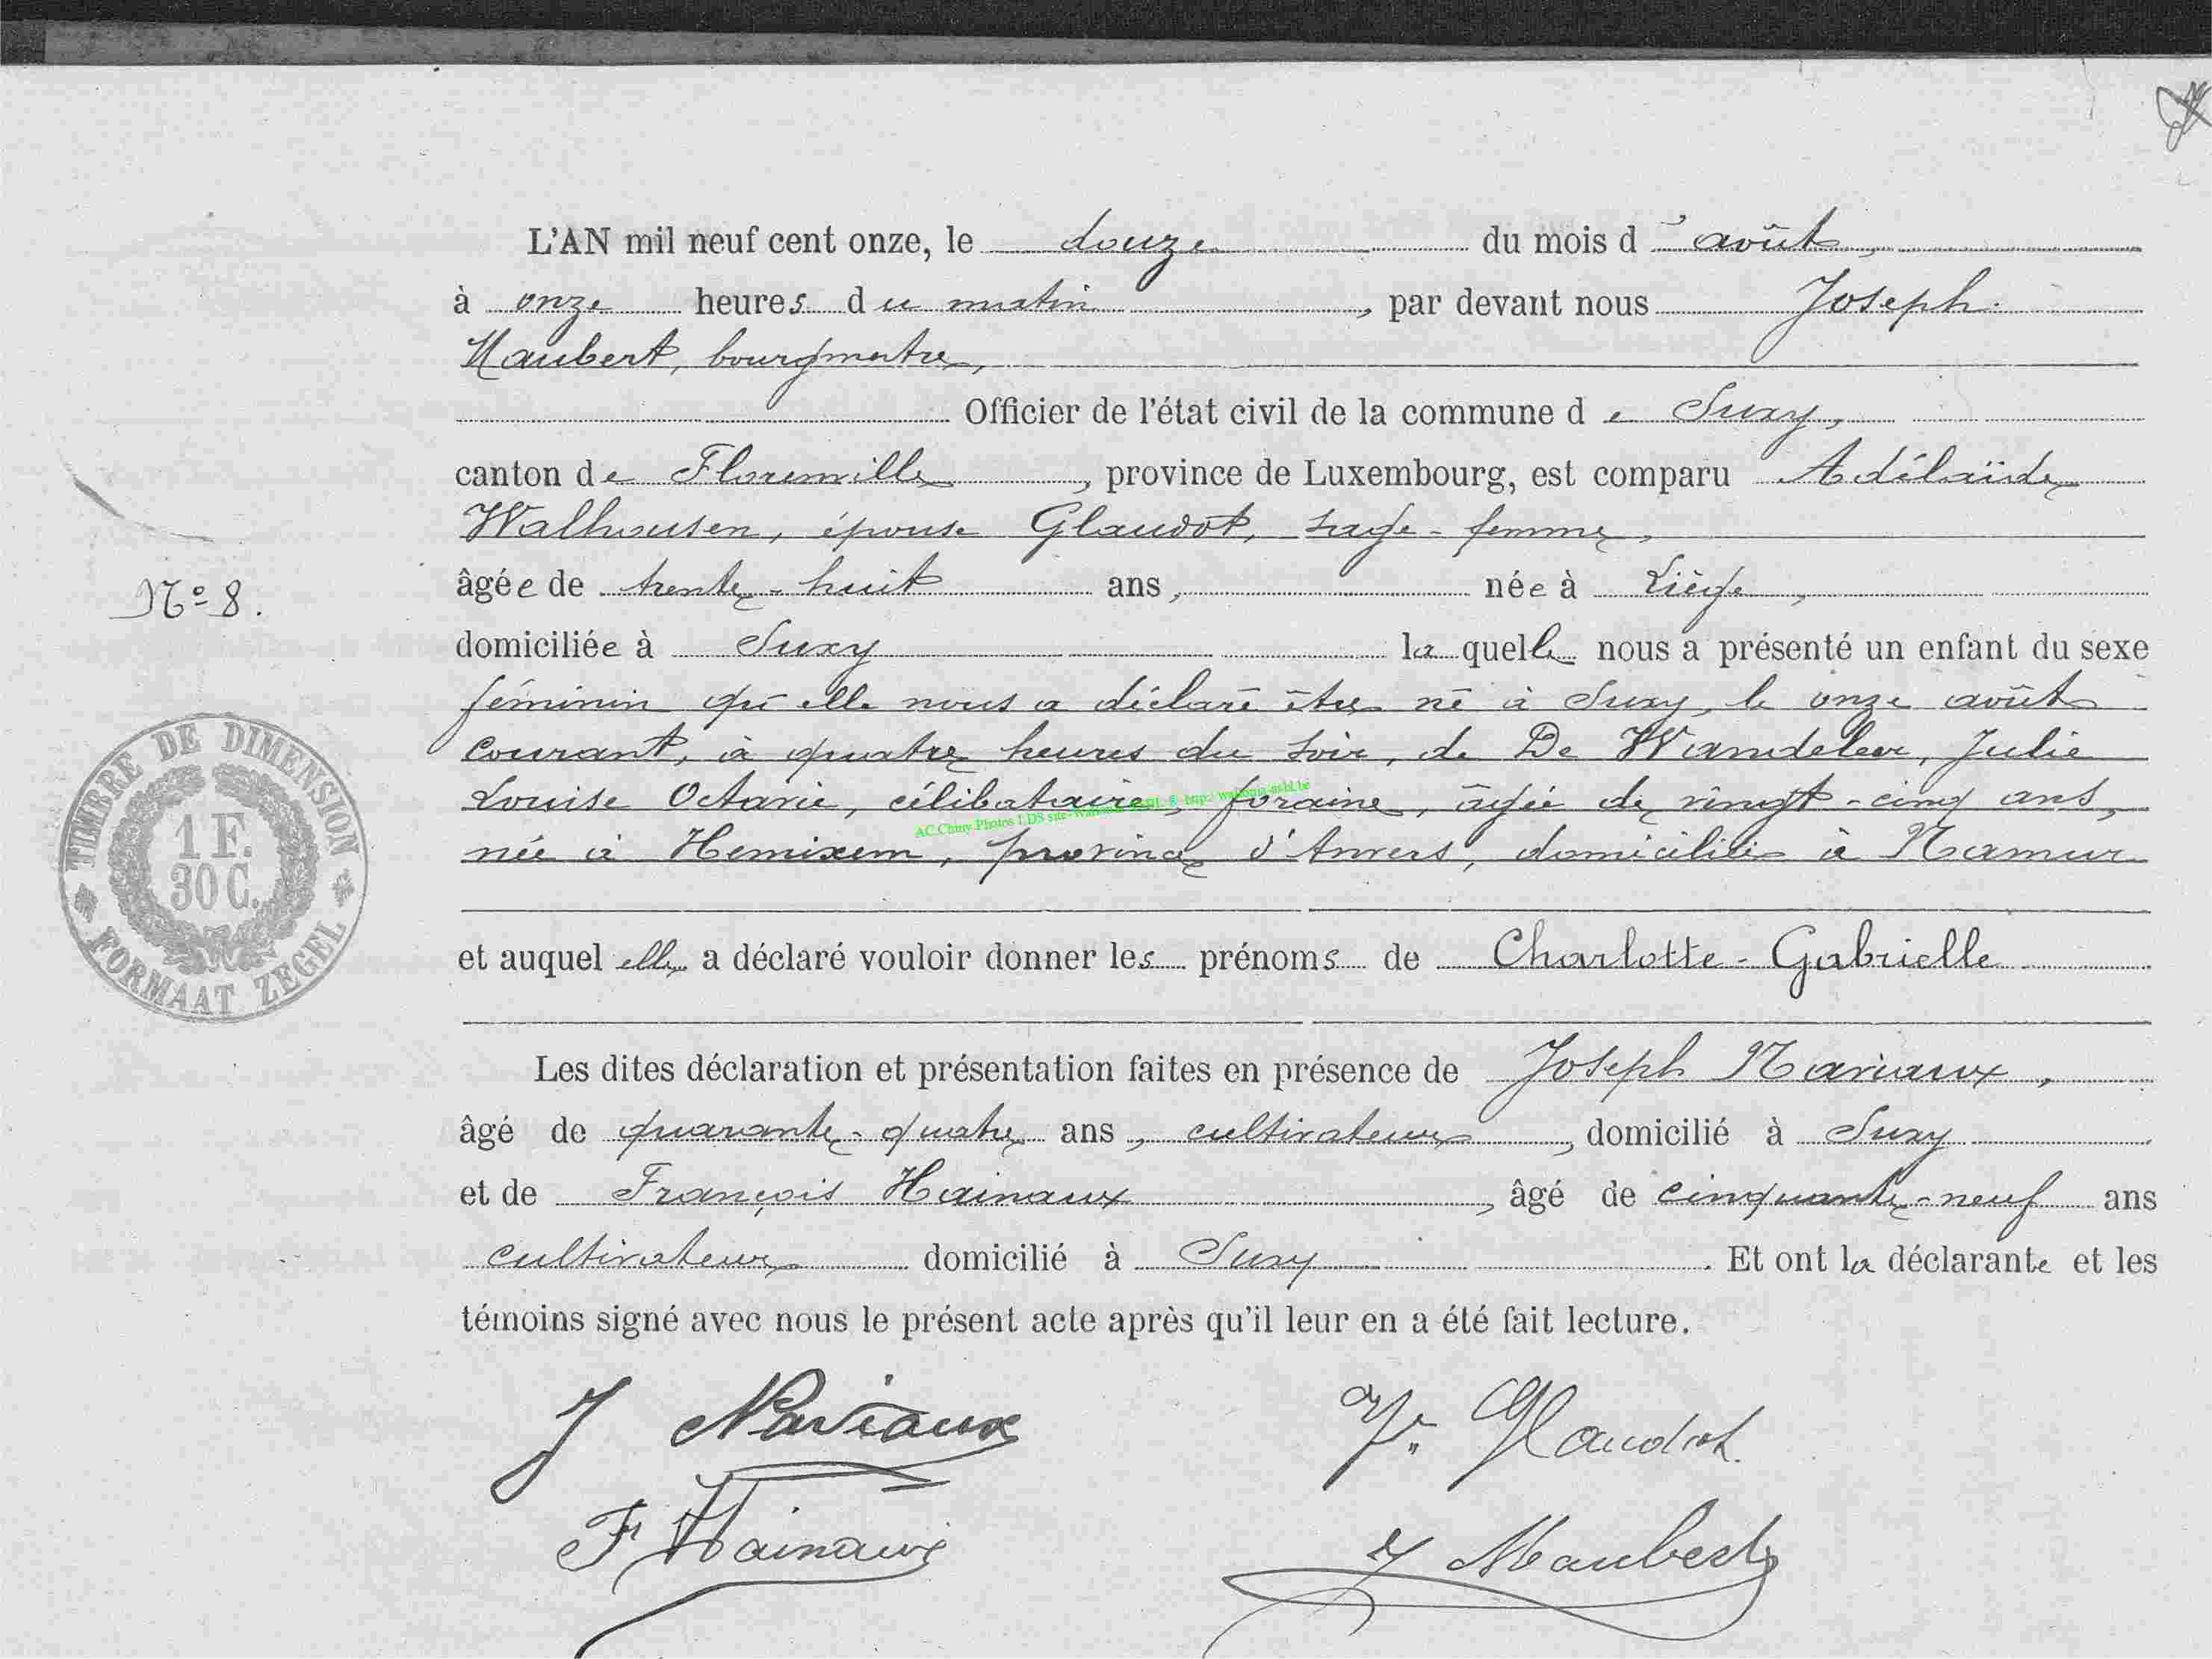 L'AN mil neuf cent onze, le douze du mois d'août,
à onze heures du matin, par devant nous Joseph
Maubert, bourgmestre,
Officier de l'état civil de la commune de Suxy,
canton de Florenville, province de Luxembourg, est comparu Adélaïde
Walhousen, épouse Glaudot, sage-femme,
âgée de trente-huit ans, née à Liège,
Nº 8.
domiciliée à Suxy laquelle nous a présenté un enfant du sexe
féminin qu'elle nous a déclaré être né à Suxy, le onze août
courant, à quatre heures du soir, de De Wandeleer, Julie
Louise Octavie, célibataire, foraine, âgée de vingt-cinq ans,
née à Hemixem, province d'Anvers, domiciliée à Namur
TIMBRE DE DIMENSION
1 F.
30 C.
FORMAAT ZEGEL
et auquel elle a déclaré vouloir donner les prénoms de Charlotte-Gabrielle
Les dites déclaration et présentation faites en présence de Joseph Naviaux,
âgé de quarante-quatre ans, cultivateur, domicilié à Suxy
et de François Hainaux, âgé de cinquante-neuf ans
cultivateur domicilié à Suxy. Et ont la déclarante et les
témoins signé avec nous le présent acte après qu'il leur en a été fait lecture.
J Naviaux Glaudot
F Hainaux J Maubert